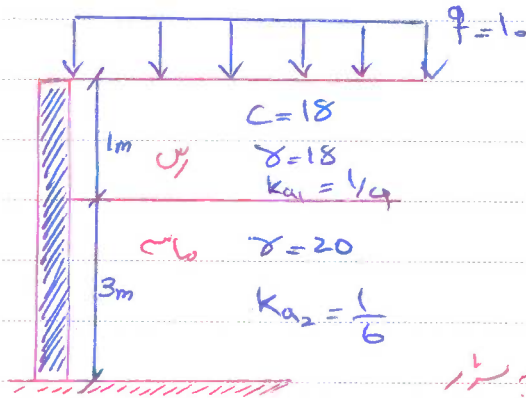 q = 10
C = 18
1m
رس
γ = 18
ka₁ = 1/4
ماسه
γ = 20
3m
Ka₂ = 1/6